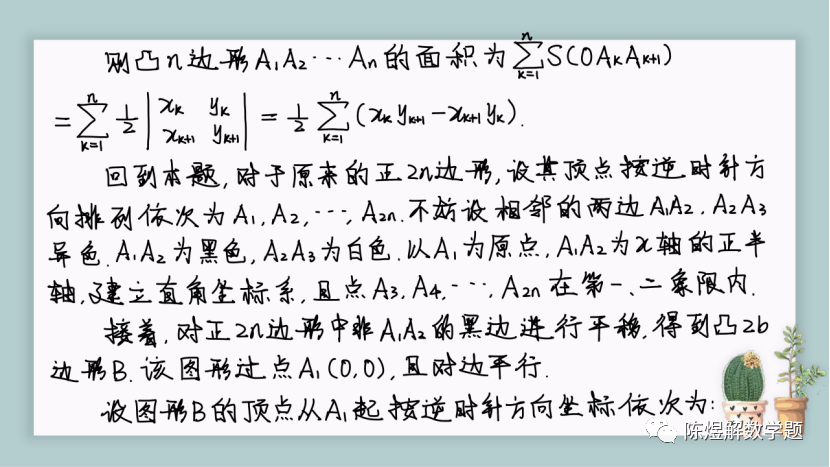 则凸n边形A₁A₂⋯Aₙ的面积为∑ₖ₌₁ⁿS(OAₖAₖ₊₁)
=∑ₖ₌₁ⁿ ½|xₖ yₖ; xₖ₊₁ yₖ₊₁| = ½∑ₖ₌₁ⁿ(xₖyₖ₊₁-xₖ₊₁yₖ).
回到本题,对于原来的正2n边形,设其顶点按逆时针方
向排列依次为A₁,A₂,⋯,A₂ₙ.不妨设相邻的两边A₁A₂,A₂A₃
异色.A₁A₂为黑色,A₂A₃为白色.以A₁为原点,A₁A₂为x轴的正半
轴,建立直角坐标系,且点A₃,A₄,⋯,A₂ₙ在第一、二象限内.
接着,对正2n边形中非A₁A₂的黑边进行平移,得到凸2b
边形B.该图形过点A₁(0,0),且对边平行.
设图形B的顶点从A₁起按逆时针方向坐标依次为:
陈煜解数学题